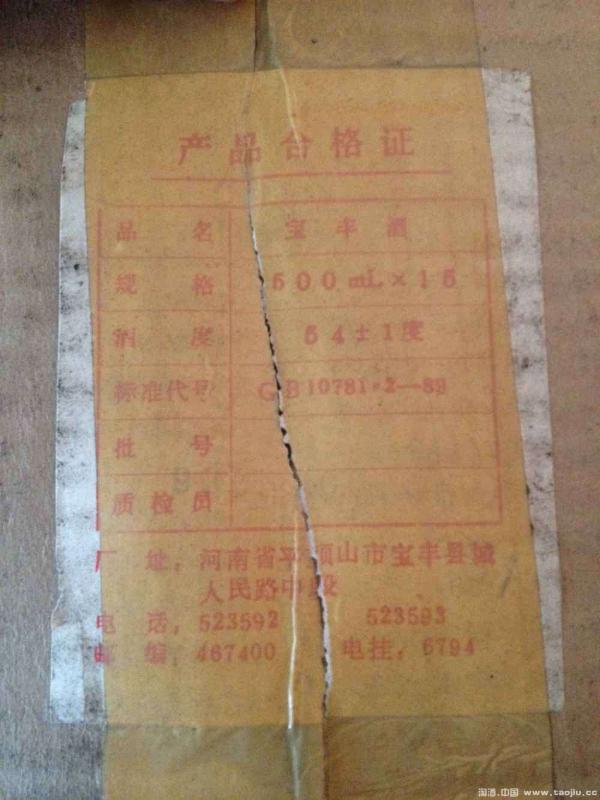 产品合格证
品 名 宝丰酒
规 格 500mL×15
酒 度 54±1度
标准代号 GB10781·2—89
批 号
质检员
厂 址：河南省平顶山市宝丰县城
人民路中段
电 话：523592 523593
邮 编：467400 电挂：6794
淘酒.中国 www.taojiu.cc